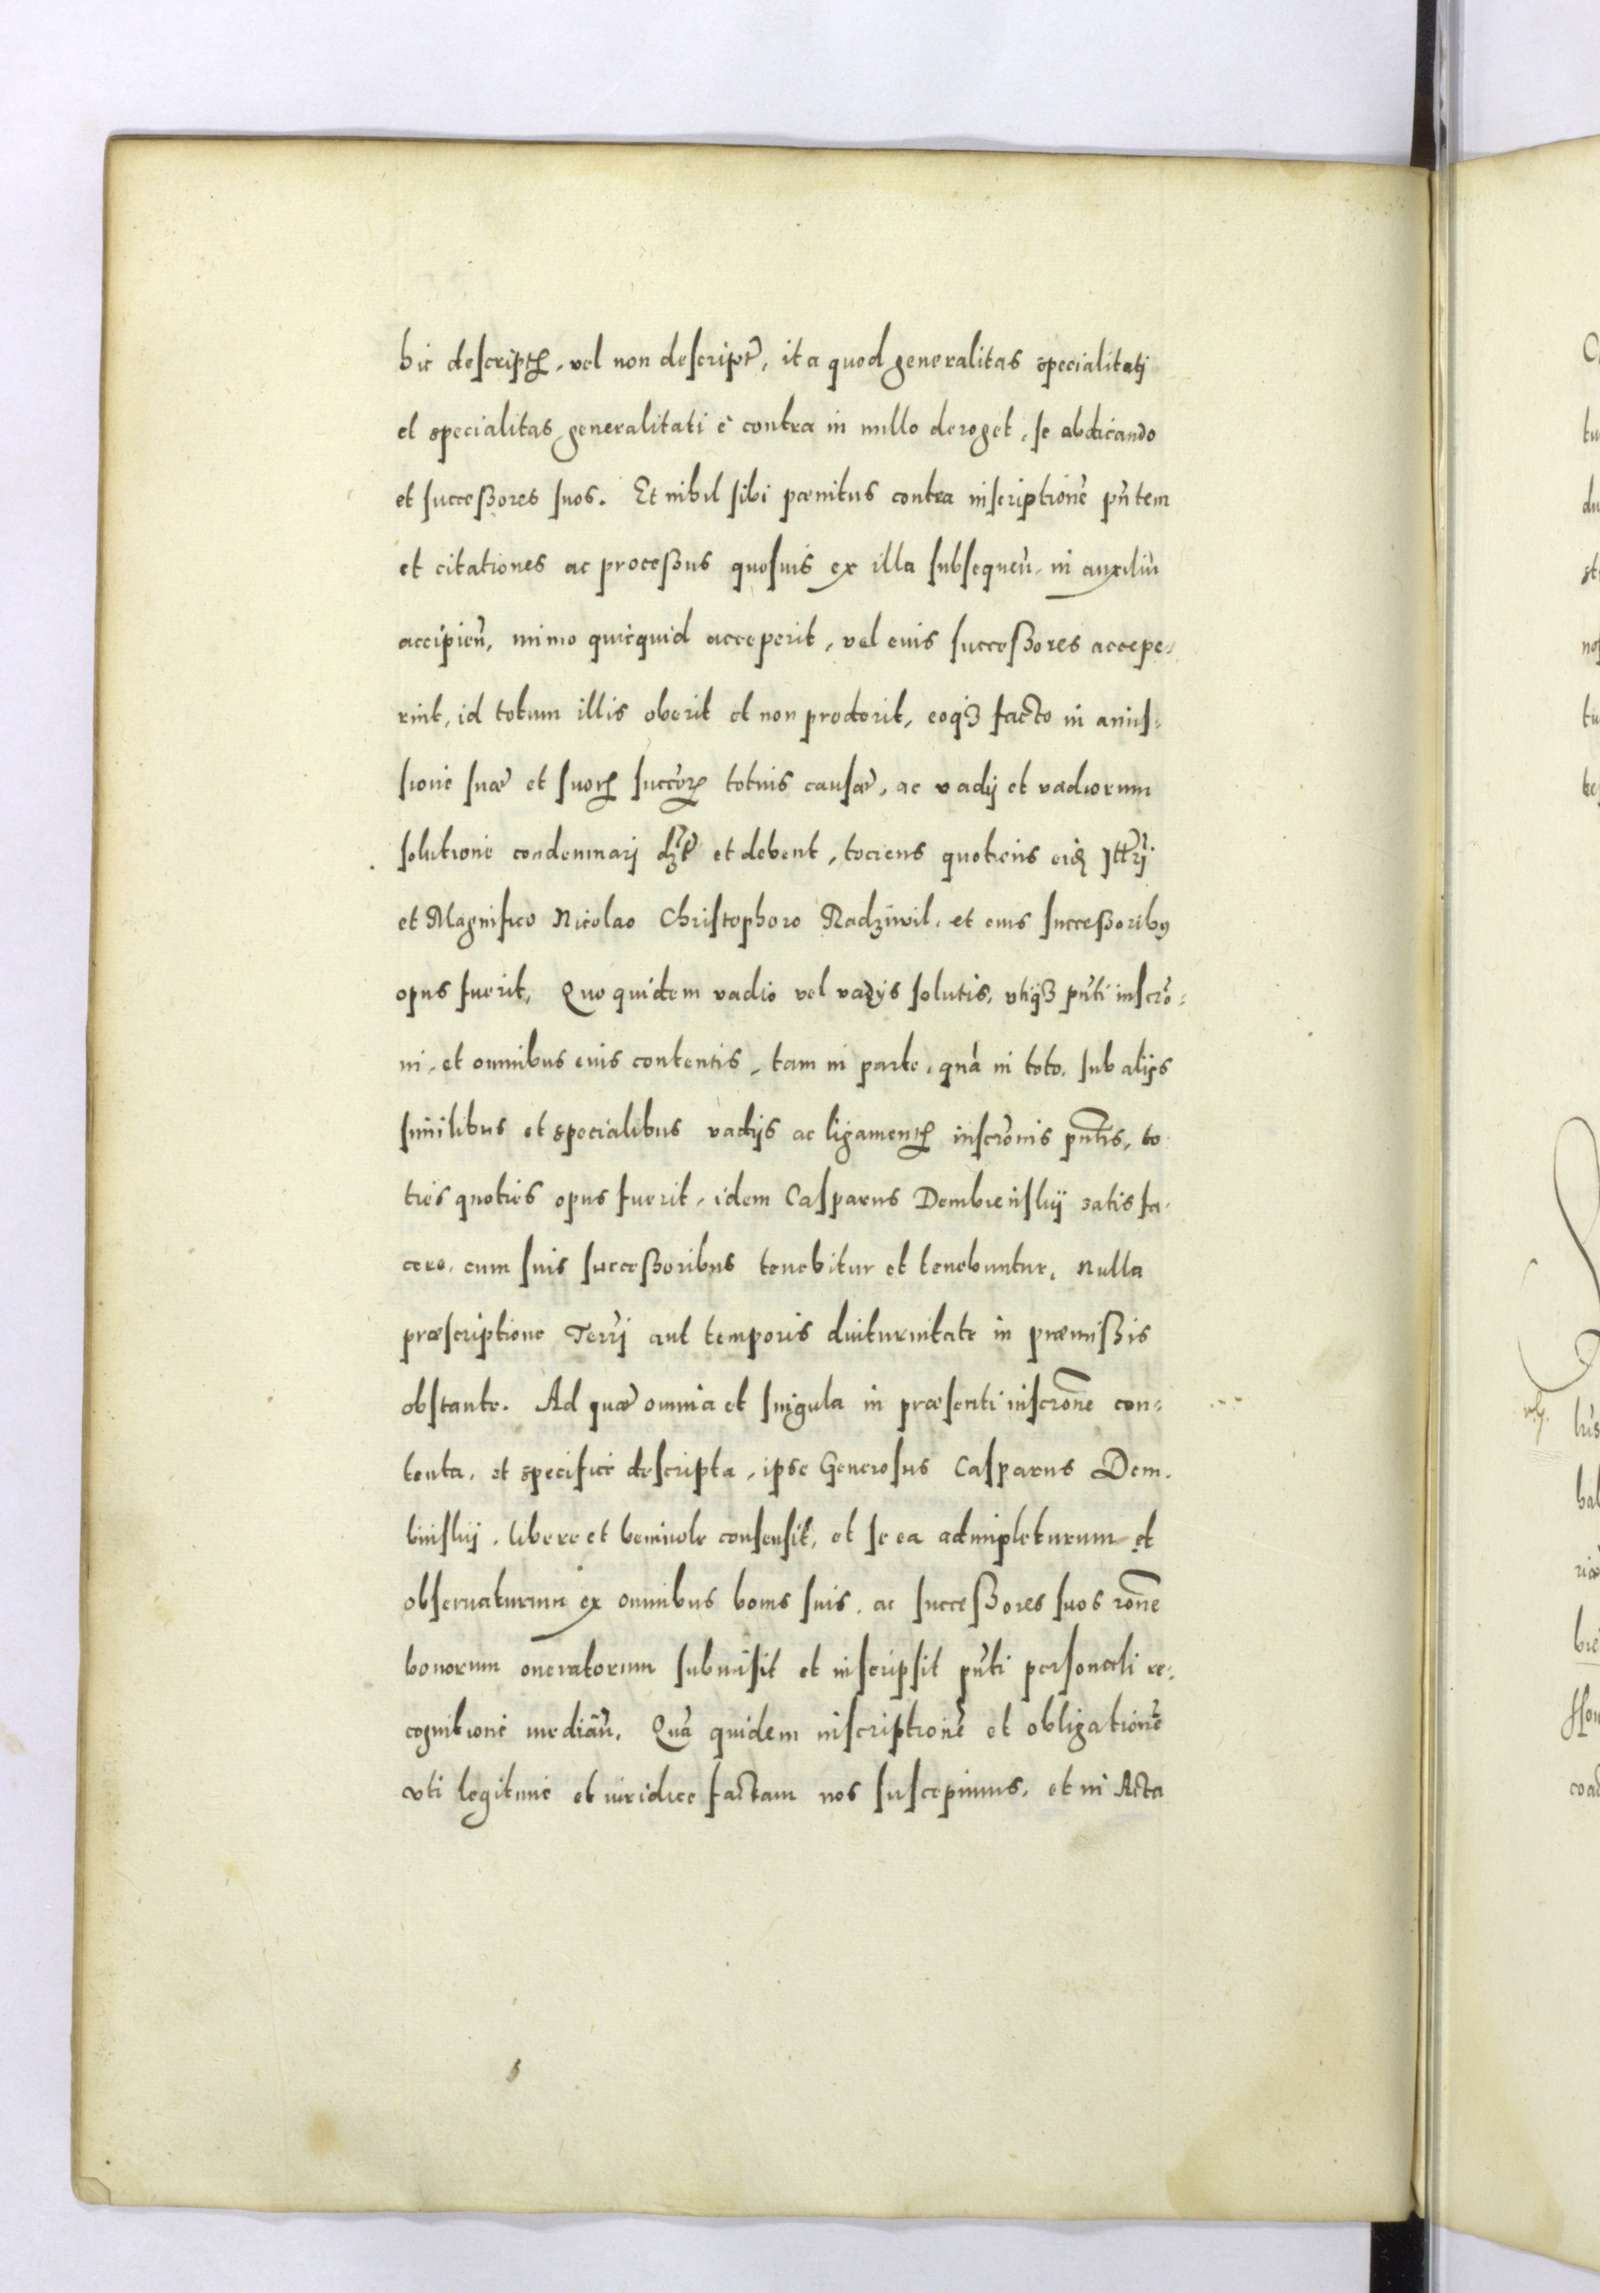 hic descriptꝭ, vel non descript̃, ita quod generalitas specialitatj
et specialitas generalitati è contra in nullo deroget, se abdicando
et successores suos. Et nihil sibi pœnitus contra inscriptionẽ pñtem
et citationes ac processus quosuis ex illa subsequeñ. in auxiliũ
accipieñ, immo quicquid acceperit, vel euis successores accepe-
rint, id totum illis oberit et non proderit, eoqꝫ facto in amis-
sione suæ et suorꝝ succorꝝ totius causæ, ac vadij et vadiorum
solutione condemnarj et debent, tociens quotiens eid
et Magnifico Nicolao Christophoro Radziwil. et euis successoribꝯ
opus fuerit, Quo quidem vadio vel vadijs solutis, vtiqꝫ pñti inscrõ-
ni, et omnibus euis contentis, tam in parte, quã in toto, sub alijs
similibus et specialibus vadijs ac ligamentꝭ inscrõnis pñtis, to
ties quoties opus fuerit, idem Casparus Dembienslij satis fa-
cere, cum suis successoribus tenebitur et tenebuntur, nulla
præscriptione Terrj aut temporis diuturnitate in præmissis
obstante. Ad quæ omnia et singula in præsenti inscrõne con-
tenta, et specificè descripta, ipse Generosus Casparus Dem-
binslij, libere et beniuole consensit, et se ea adimpleturum et
obseruaturum ex omnibus bonis suis, ac successores suos rõne
bonorum oneratorum submisit et inscripsit pñti personali re-
cognitione mediañ. Quã quidem inscriptionẽ et obligationẽ
vti legitimè et iuridicè factam nos suscepimus, et in Acta